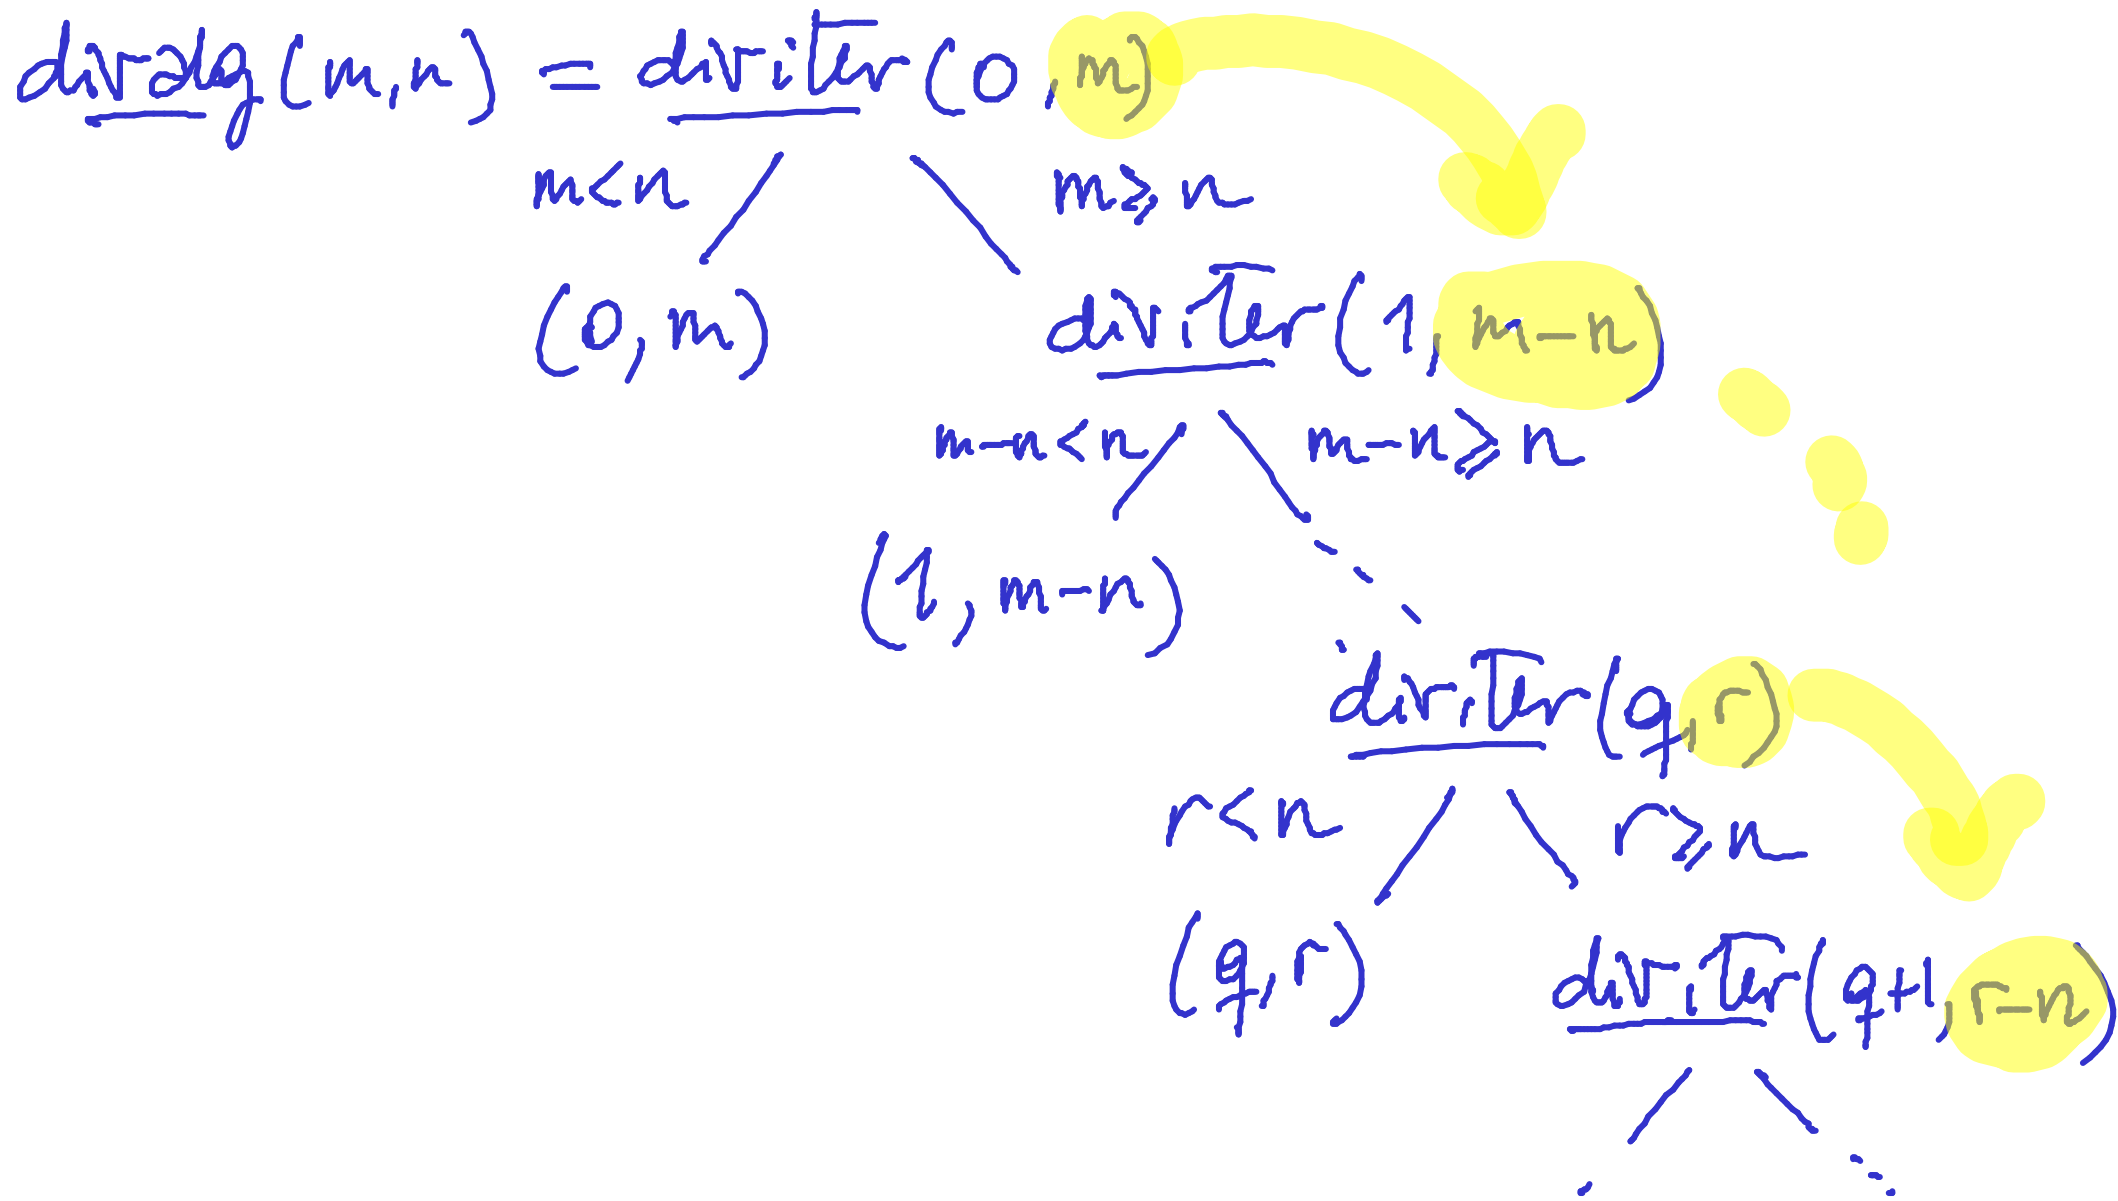 divalg(m,n) = diviter(0,m)
m<n m⩾n
(0,m) diviter(1,m-n)
m-n<n m-n⩾n
(1,m-n)
diviter(q,r)
r<n r⩾n
(q,r) diviter(q+1,r-n)